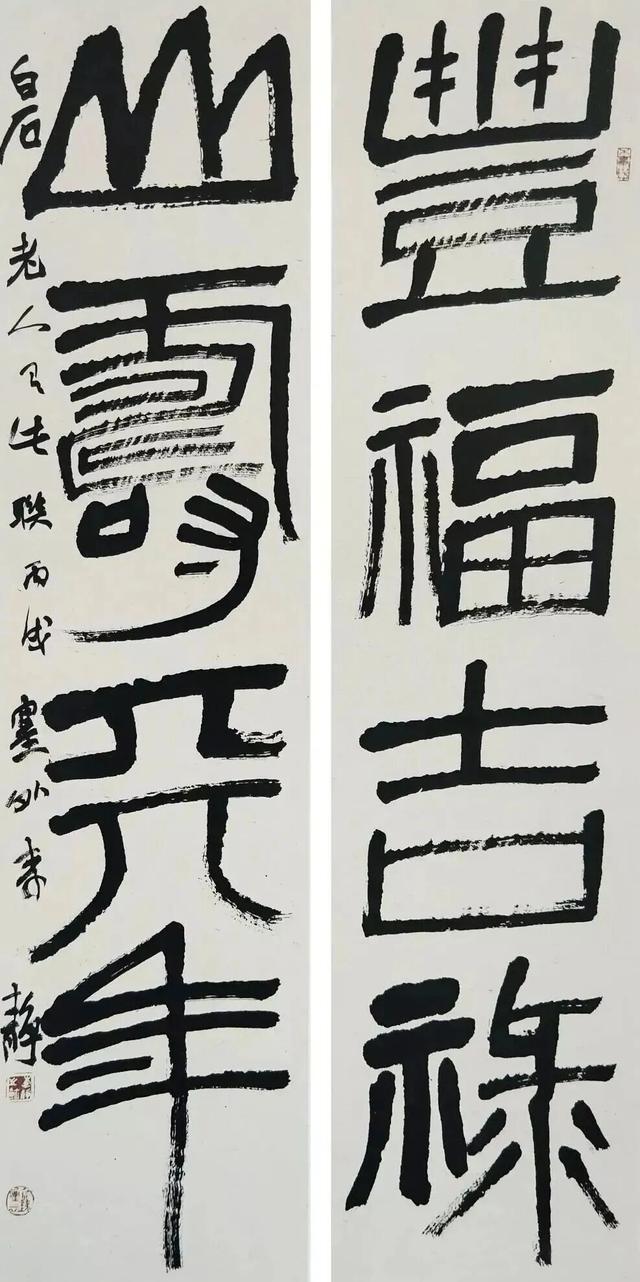 豐福吉祿
山壽年
白石老人有此聯丙戌塞外靜